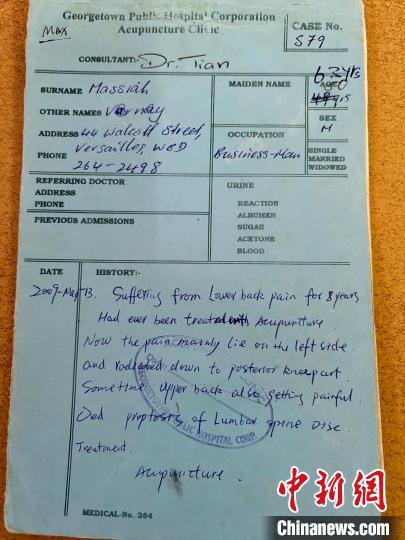 Georgetown Public Hospital Corporation
Acupuncture Clinic
Max
CASE No.
S79
CONSULTANT:- Dr. Tian
SURNAME Massiah
OTHER NAMES
ADDRESS 44 Walcott Street,
Versailles, WBD
PHONE 264-2498
MAIDEN NAME
63 yrs
AGE
yrs
SEX
M
OCCUPATION
Business-Man
SINGLE
MARRIED
WIDOWED
REFERRING DOCTOR
ADDRESS
PHONE
PREVIOUS ADMISSIONS
URINE
REACTION
ALBUMEN
SUGAR
ACETONE
BLOOD
DATE HISTORY:-
2009-May-13. Suffering from Lower back pain for 8 years
Had ever been treated with Acupuncture
Now the pain mainly lie on the left side
and radiated down to posterior knee part
Sometime upper back also getting painful
Ded proptosis of Lumbar spine Disc
Treatment
Acupuncture.
GEORGETOWN PUBLIC HOSPITAL CORP.
MEDICAL-No. 264
中新网
Chinanews.com